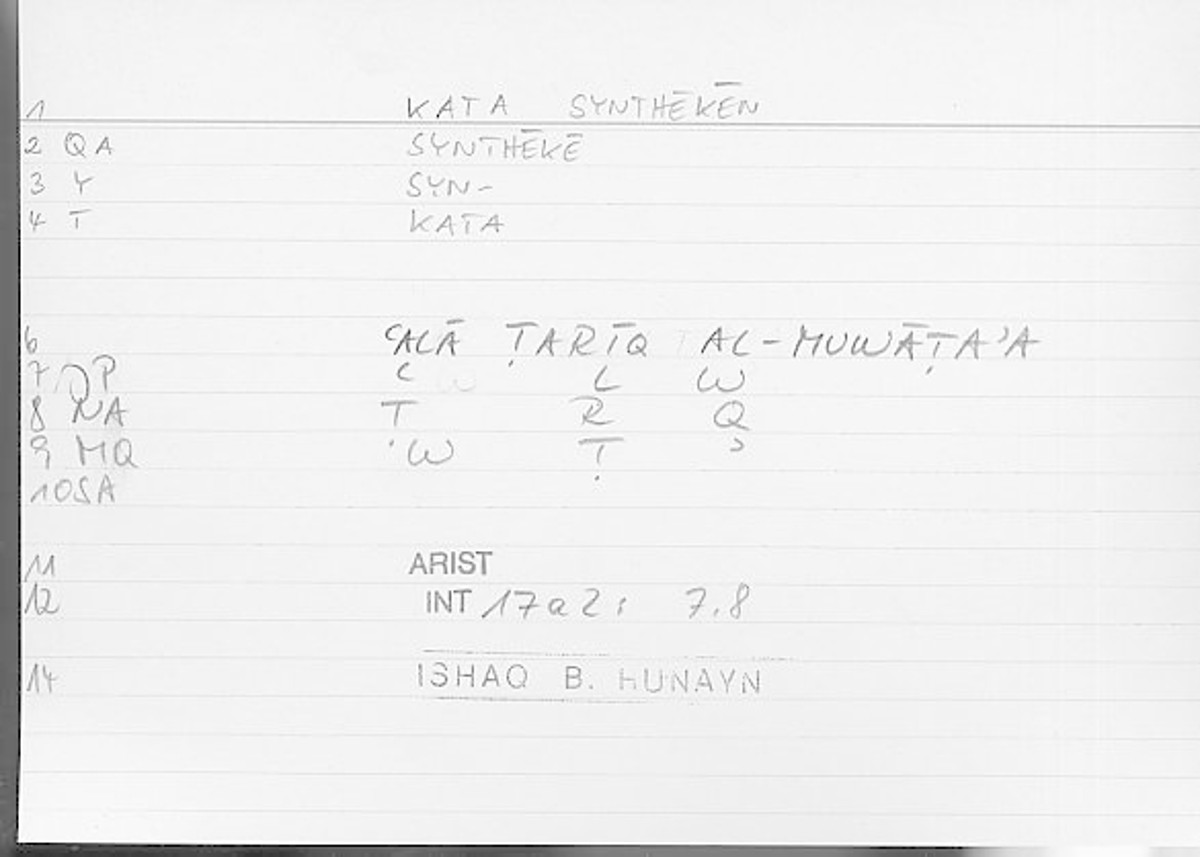 1 KATA SYNTHĒKĒN
2 QA SYNTHĒKĒ
3 Y SYN-
4 T KATA
6 ʿALĀ ṬARĪQ AL-MUWĀṬAʾA
7 QP ʿ L W
8 NA Ṭ R Q
9 MQ W Ṭ ʾ
10 SA
11 ARIST
12 INT 17a2: 7.8
14 ISHAQ B. HUNAYN